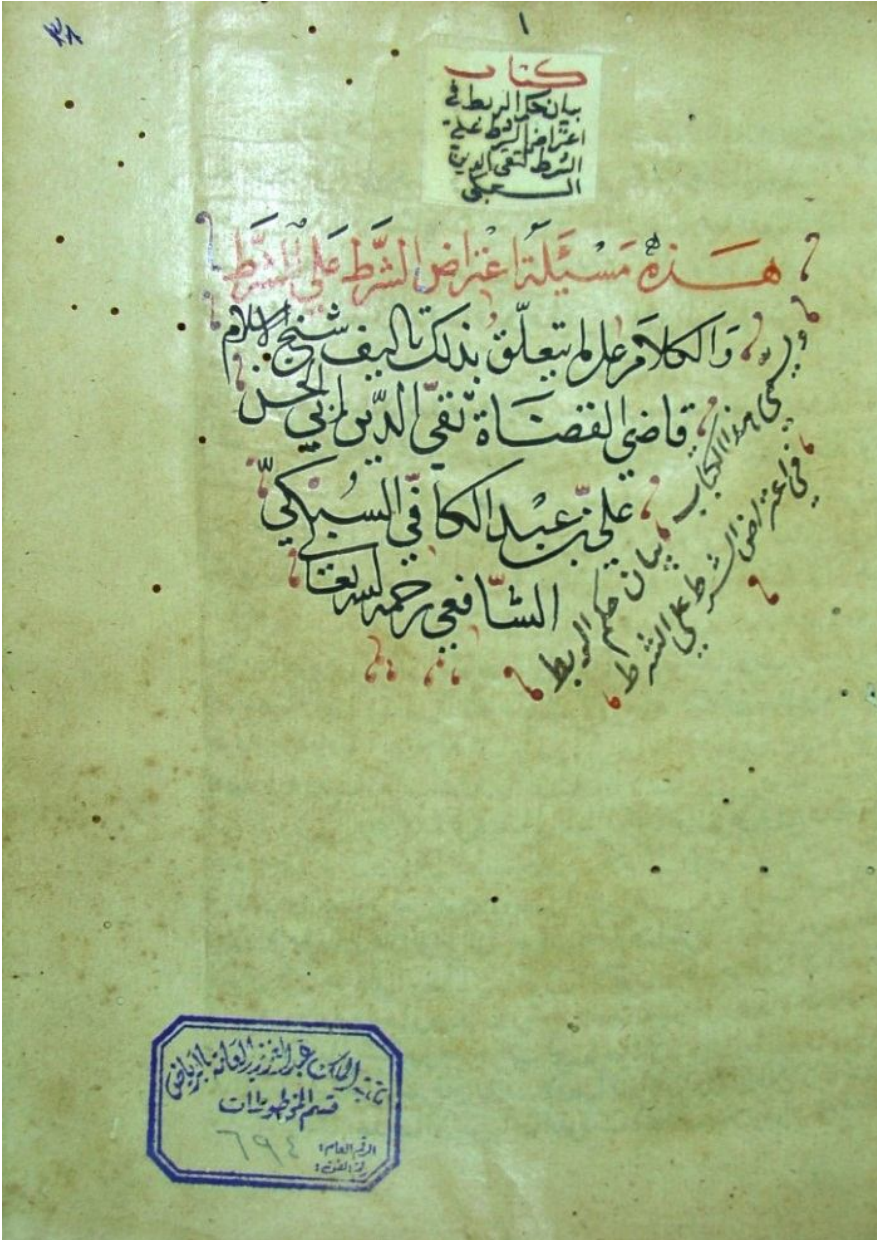 ٣٨
١
كتاب
بيان حكم الربط في
اعتراض الشرط على
الشرط لتقي الدين
السبكي
هَذِهِ مَسْئَلَة اعْتراض الشَّرط عَلى الشَّرط
وَالكلام على ما يتعلّق بذلك تاليف شيخ الاسلام
قاضي القضَاة تقيّ الدّين ابي الحسن
علي بن عبْد الكافي السُبْكيّ
الشّافعي رحمه الله تعالى
ويسمّى هذا الكتاب بيان حكم الربط
في اعتراض الشرط على الشرط
مكتبة الملك عبد العزيز العامة بالرياض
قسم المخطوطات
الرقم العام: ٦٩٤